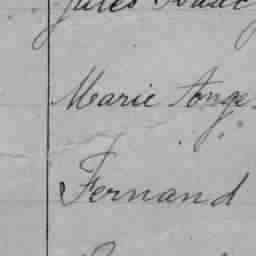 Jules
Marie Ange
Fernand